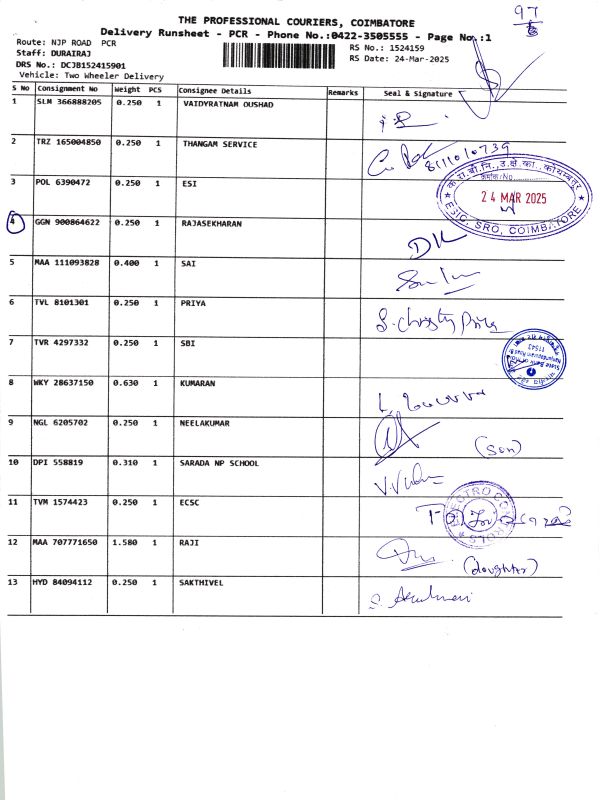 97
THE PROFESSIONAL COURIERS, COIMBATORE
Delivery Runsheet - PCR - Phone No.:0422-3505555 - Page No.:1
Route: NJP ROAD PCR
Staff: DURAIRAJ
DRS No.: DCJB152415901
Vehicle: Two Wheeler Delivery
RS No.: 1524159
RS Date: 24-Mar-2025
S No Consignment No Weight PCS Consignee Details Remarks Seal & Signature
1 SLM 366888205 0.250 1 VAIDYRATNAM OUSHAD
2 TRZ 165004850 0.250 1 THANGAM SERVICE 8111010739
3 POL 6390472 0.250 1 ESI
क.रा.बी.नि., उ.क्षे.का., कोयम्बत्तूर
24 MAR 2025
ESIC, SRO, COIMBATORE
4 GGN 900864622 0.250 1 RAJASEKHARAN
5 MAA 111093828 0.400 1 SAI
6 TVL 8101301 0.250 1 PRIYA S. Christy Priya
7 TVR 4297332 0.250 1 SBI
State Bank of India
11543
8 WKY 28637150 0.630 1 KUMARAN
9 NGL 6205702 0.250 1 NEELAKUMAR (Son)
10 DPI 558819 0.310 1 SARADA NP SCHOOL
11 TVM 1574423 0.250 1 ECSC
ELECTRO CONTROLS
12 MAA 707771650 1.580 1 RAJI (daughter)
13 HYD 84094112 0.250 1 SAKTHIVEL